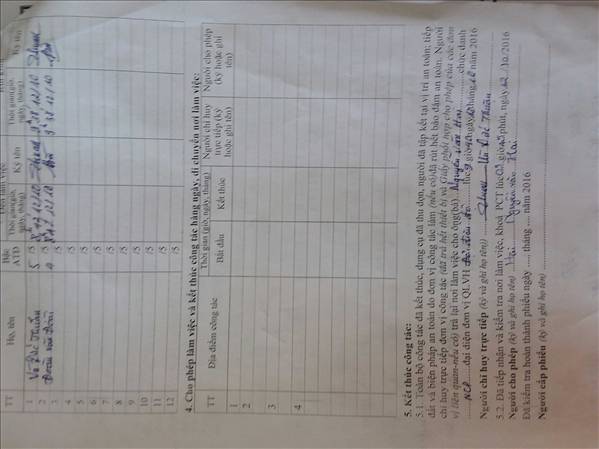 TT Họ, tên Bậc ATĐ Thời gian(giờ, ngày, tháng) Ký tên Thời gian(giờ, ngày, tháng) Ký tên
1 Vũ Đắc Thuần 5 /5
2 Đoàn văn /5
3 /5
4 /5
5 /5
6 /5
7 /5
8 /5
9 /5
10 /5
11 /5
12 /5
4. Cho phép làm việc và kết thúc công tác hàng ngày, di chuyển nơi làm việc:
TT Địa điểm công tác Thời gian (giờ, ngày, tháng) Người chỉ huy trực tiếp (ký hoặc ghi tên) Người cho phép (ký hoặc ghi tên)
Bắt đầu Kết thúc
1
2
3
4
5. Kết thúc công tác:
5.1. Toàn bộ công tác đã kết thúc, dụng cụ đã thu dọn, người đã tập kết tại vị trí an toàn; tiếp
đất và biện pháp an toàn do đơn vị công tác làm (nếu có)đã rút hết bảo đảm an toàn. Người
chỉ huy trực tiếp đơn vị công tác (đã trả hết thiết bị và Giấy phối hợp cho phép của các đơn
vị liên quan-nếu có) trả lại nơi làm việc cho ông(bà) Nguyễn Văn Hai chức danh
NCP đại diện đơn vị QLVH lúc giờ ngày tháng 10 năm 2016
Người chỉ huy trực tiếp (ký và ghi họ tên) Vũ Đắc Thuần
5.2. Đã tiếp nhận và kiểm tra nơi làm việc, khoá PCT lúc giờ phút, ngày 12/10/2016
Người cho phép (ký và ghi họ tên) Hai Nguyễn Văn Hai
Đã kiểm tra hoàn thành phiếu ngày ...., tháng .... năm 2016
Người cấp phiếu (ký và ghi họ tên)